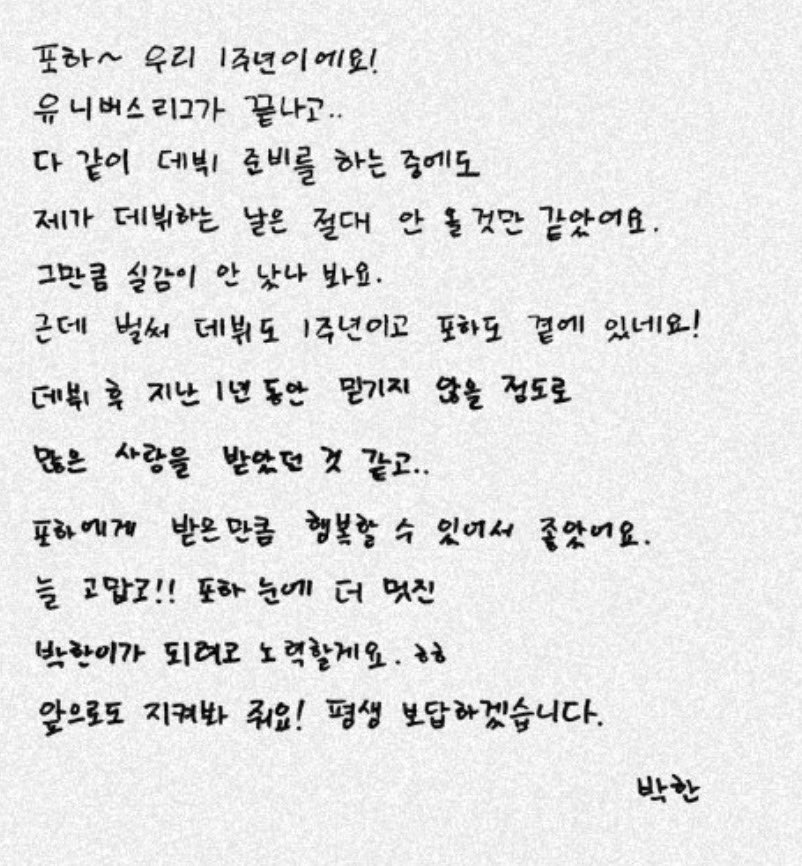 포하~ 우리 1주년이에요!
유니버스리그가 끝나고..
다 같이 데뷔 준비를 하는 중에도
제가 데뷔하는 날은 절대 안 올것만 같았어요.
그만큼 실감이 안 났나 봐요.
근데 벌써 데뷔도 1주년이고 포하도 곁에 있네요!
데뷔 후 지난 1년 동안 믿기지 않을 정도로
많은 사랑을 받았던 것 같고..
포하에게 받은만큼 행복할 수 있어서 좋았어요.
늘 고맙고!! 포하 눈에 더 멋진
박한이가 되려고 노력할게요. ㅎㅎ
앞으로도 지켜봐 줘요! 평생 보답하겠습니다.
박한